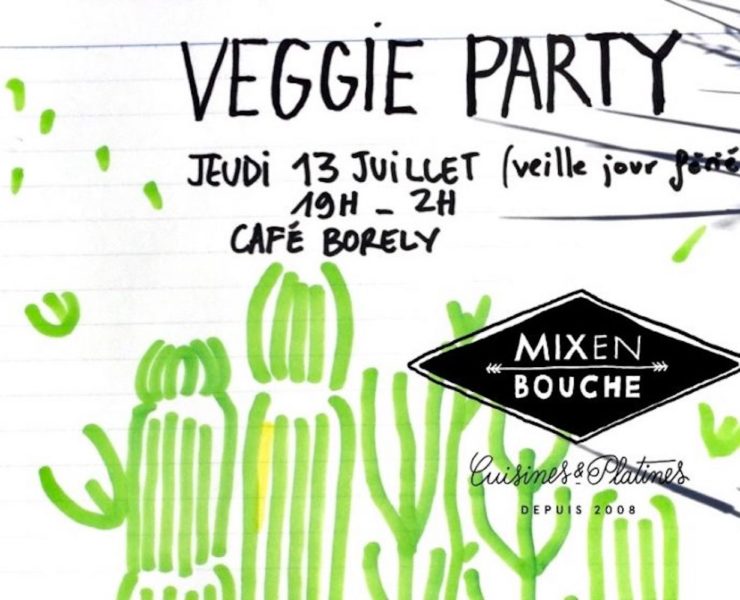 VEGGIE PARTY
JEUDI 13 JUILLET (veille jour férié
19H - 2H
CAFÉ BORELY
MIXEN
BOUCHE
Cuisines & Platines
DEPUIS 2008